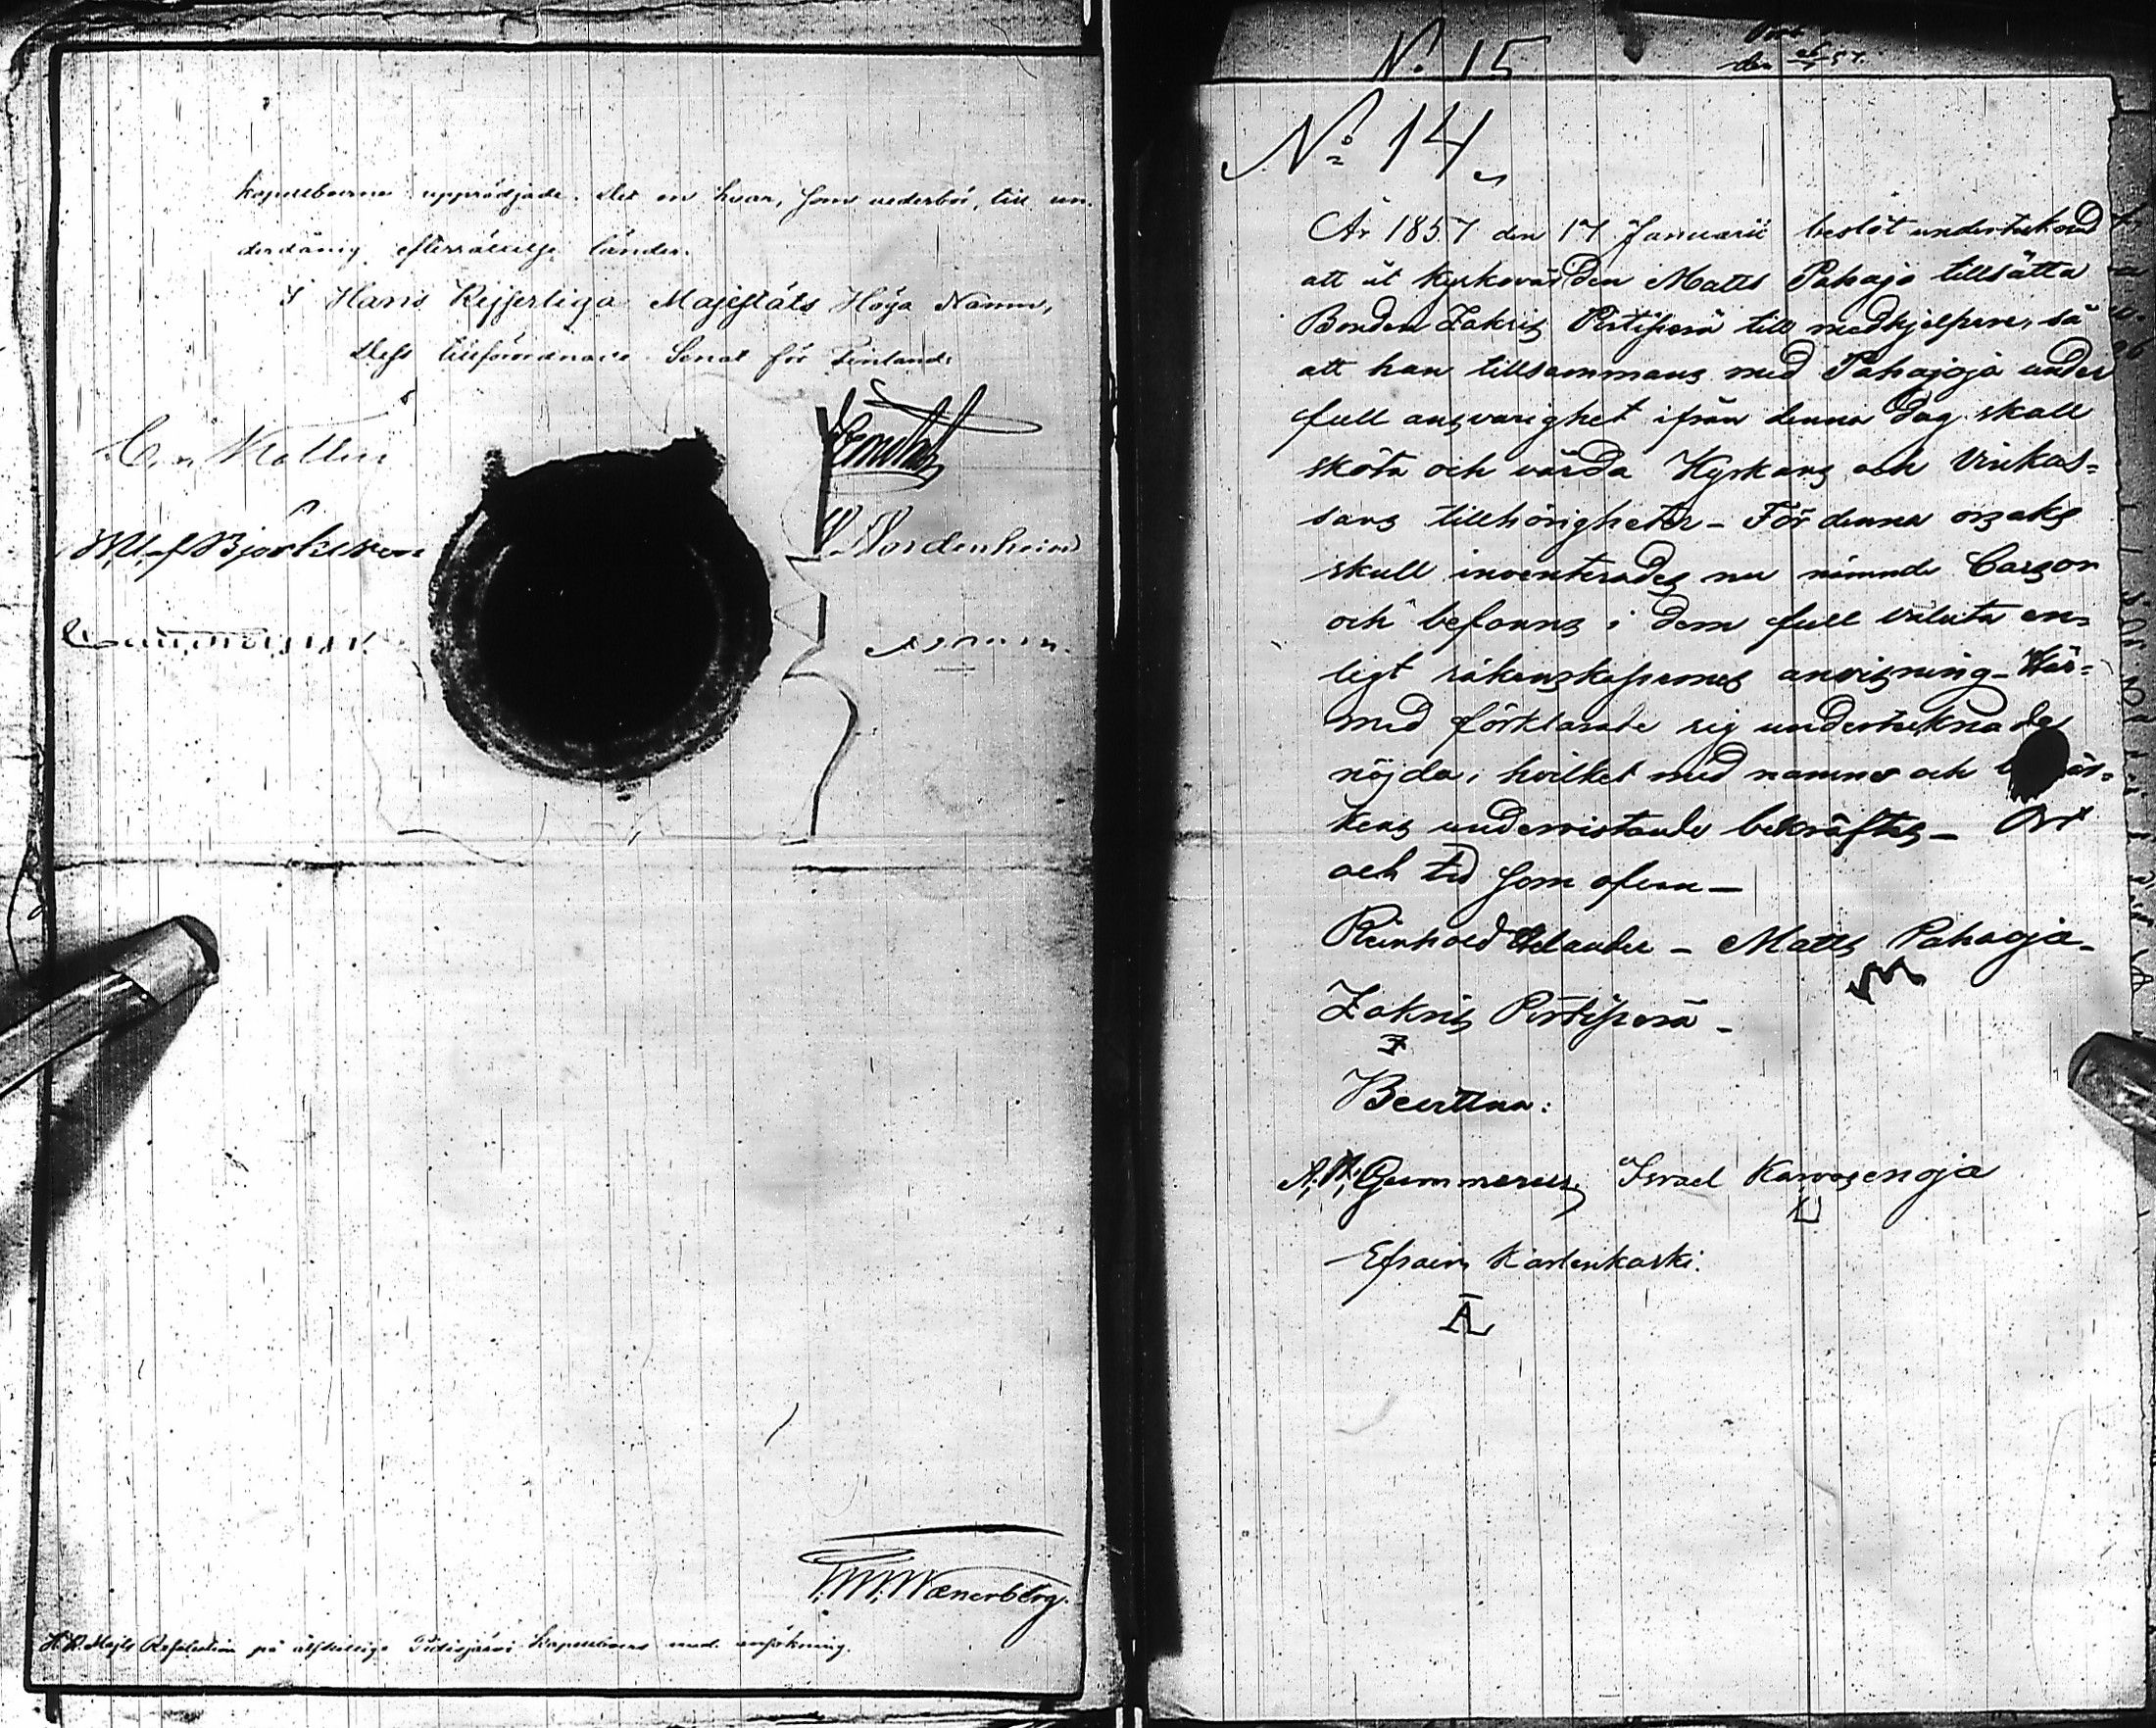 kapellboerne uppräddjade. Det en hvar, som vederbör, till un-
derdånig efterrättelse länder.
I Hans Kejserliga Majestäts Höga Namn,
Dess tillförordnade Senat för Finland:
W. Nordenheim
Wænerberg.
H. K. Majts Resolution på åtskillige Pudasjärvi Kapellboers und. ansökning.
N. 15
den
No 14
År 1857 den 17 Januarii beslöt undertecknad
att åt Kyrkovärden Matts Pahajo tillsätta
Bonden Zakris Pirtiperä till medhjelpare, så
att han tillsammans med Pahajoja under
full ansvarighet ifrån denna dag skall
sköta och vårda Kyrkans och Vinkas-
sans tillhörigheter - För denna orsaks
skull inventerades nu nämnde Cassor
och befanns i dem full valuta en-
ligt räkenskapernes anvisning - Här-
med förklarade sig undertecknade
nöjda; hvilket med namns och
kens undervistande bekräftes - Ort
och tid som ofvan -
Reinhold Helander - Matts Pahaoja -
Zakris Pirtiperä -
Bevittna:
A. W. Gummerus, Israel Karvosenoja
Efraim Kartenkaski.